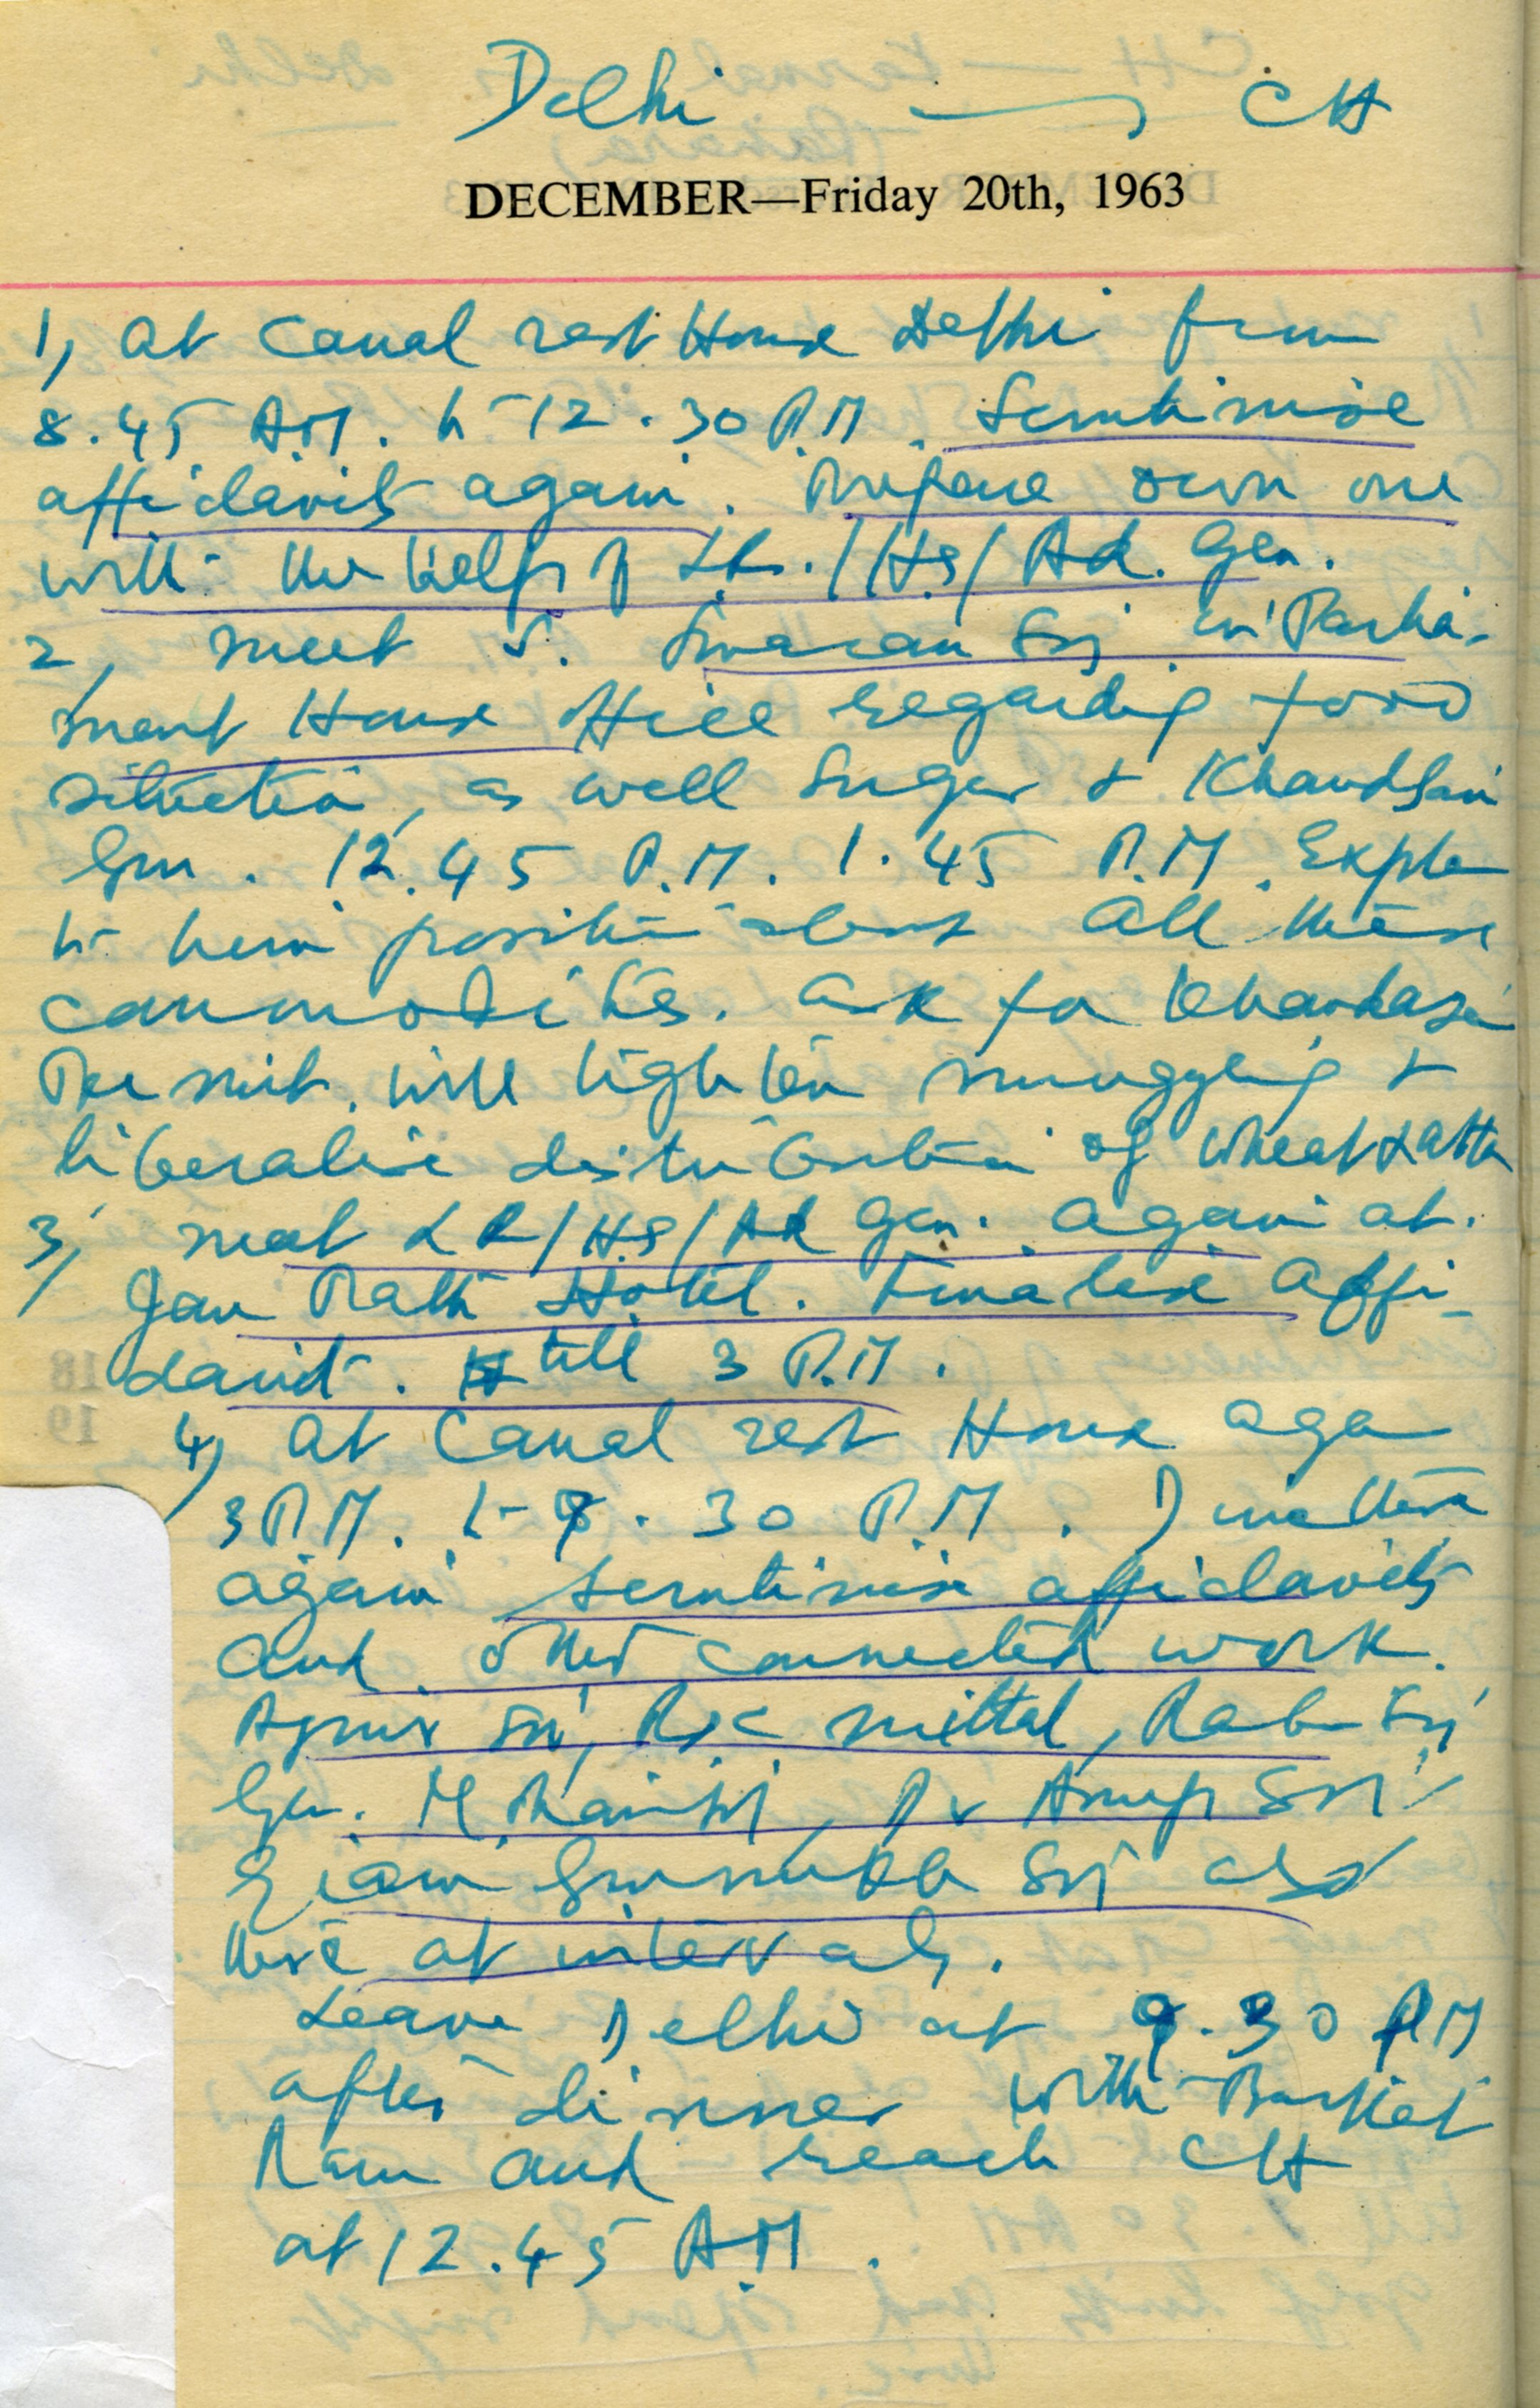 Delhi → CH
DECEMBER—Friday 20th, 1963
1, at Canal rest House Delhi from
8.45 A.M. to 12.30 P.M. Scrutinise
affidavits again. Prepare own one
with the help of LR./HS/Ad. Gen.
2, meet S. Swaran Sn in Parlia-
ment House Office regarding food
situation, as well Sugar &
12.45 P.M. 1.45 P.M.
to him position about all these
commodities. Ask for
Permit. will tighten smuggling &
liberalise distribution of wheat & atta
3, meet LR/HS/Ad Gen. again at.
Jan Path Hotel. Finalise Affi-
davit. till 3 P.M.
4, at Canal rest House
3 P.M. to 8.30 P.M.
again scrutinise affidavits
and other connected work.
mittal,

Gurmukh also
there at intervals.
Leave Delhi at 9.30 PM
after dinner with
Ram and reach CH
at 12.45 A.M.